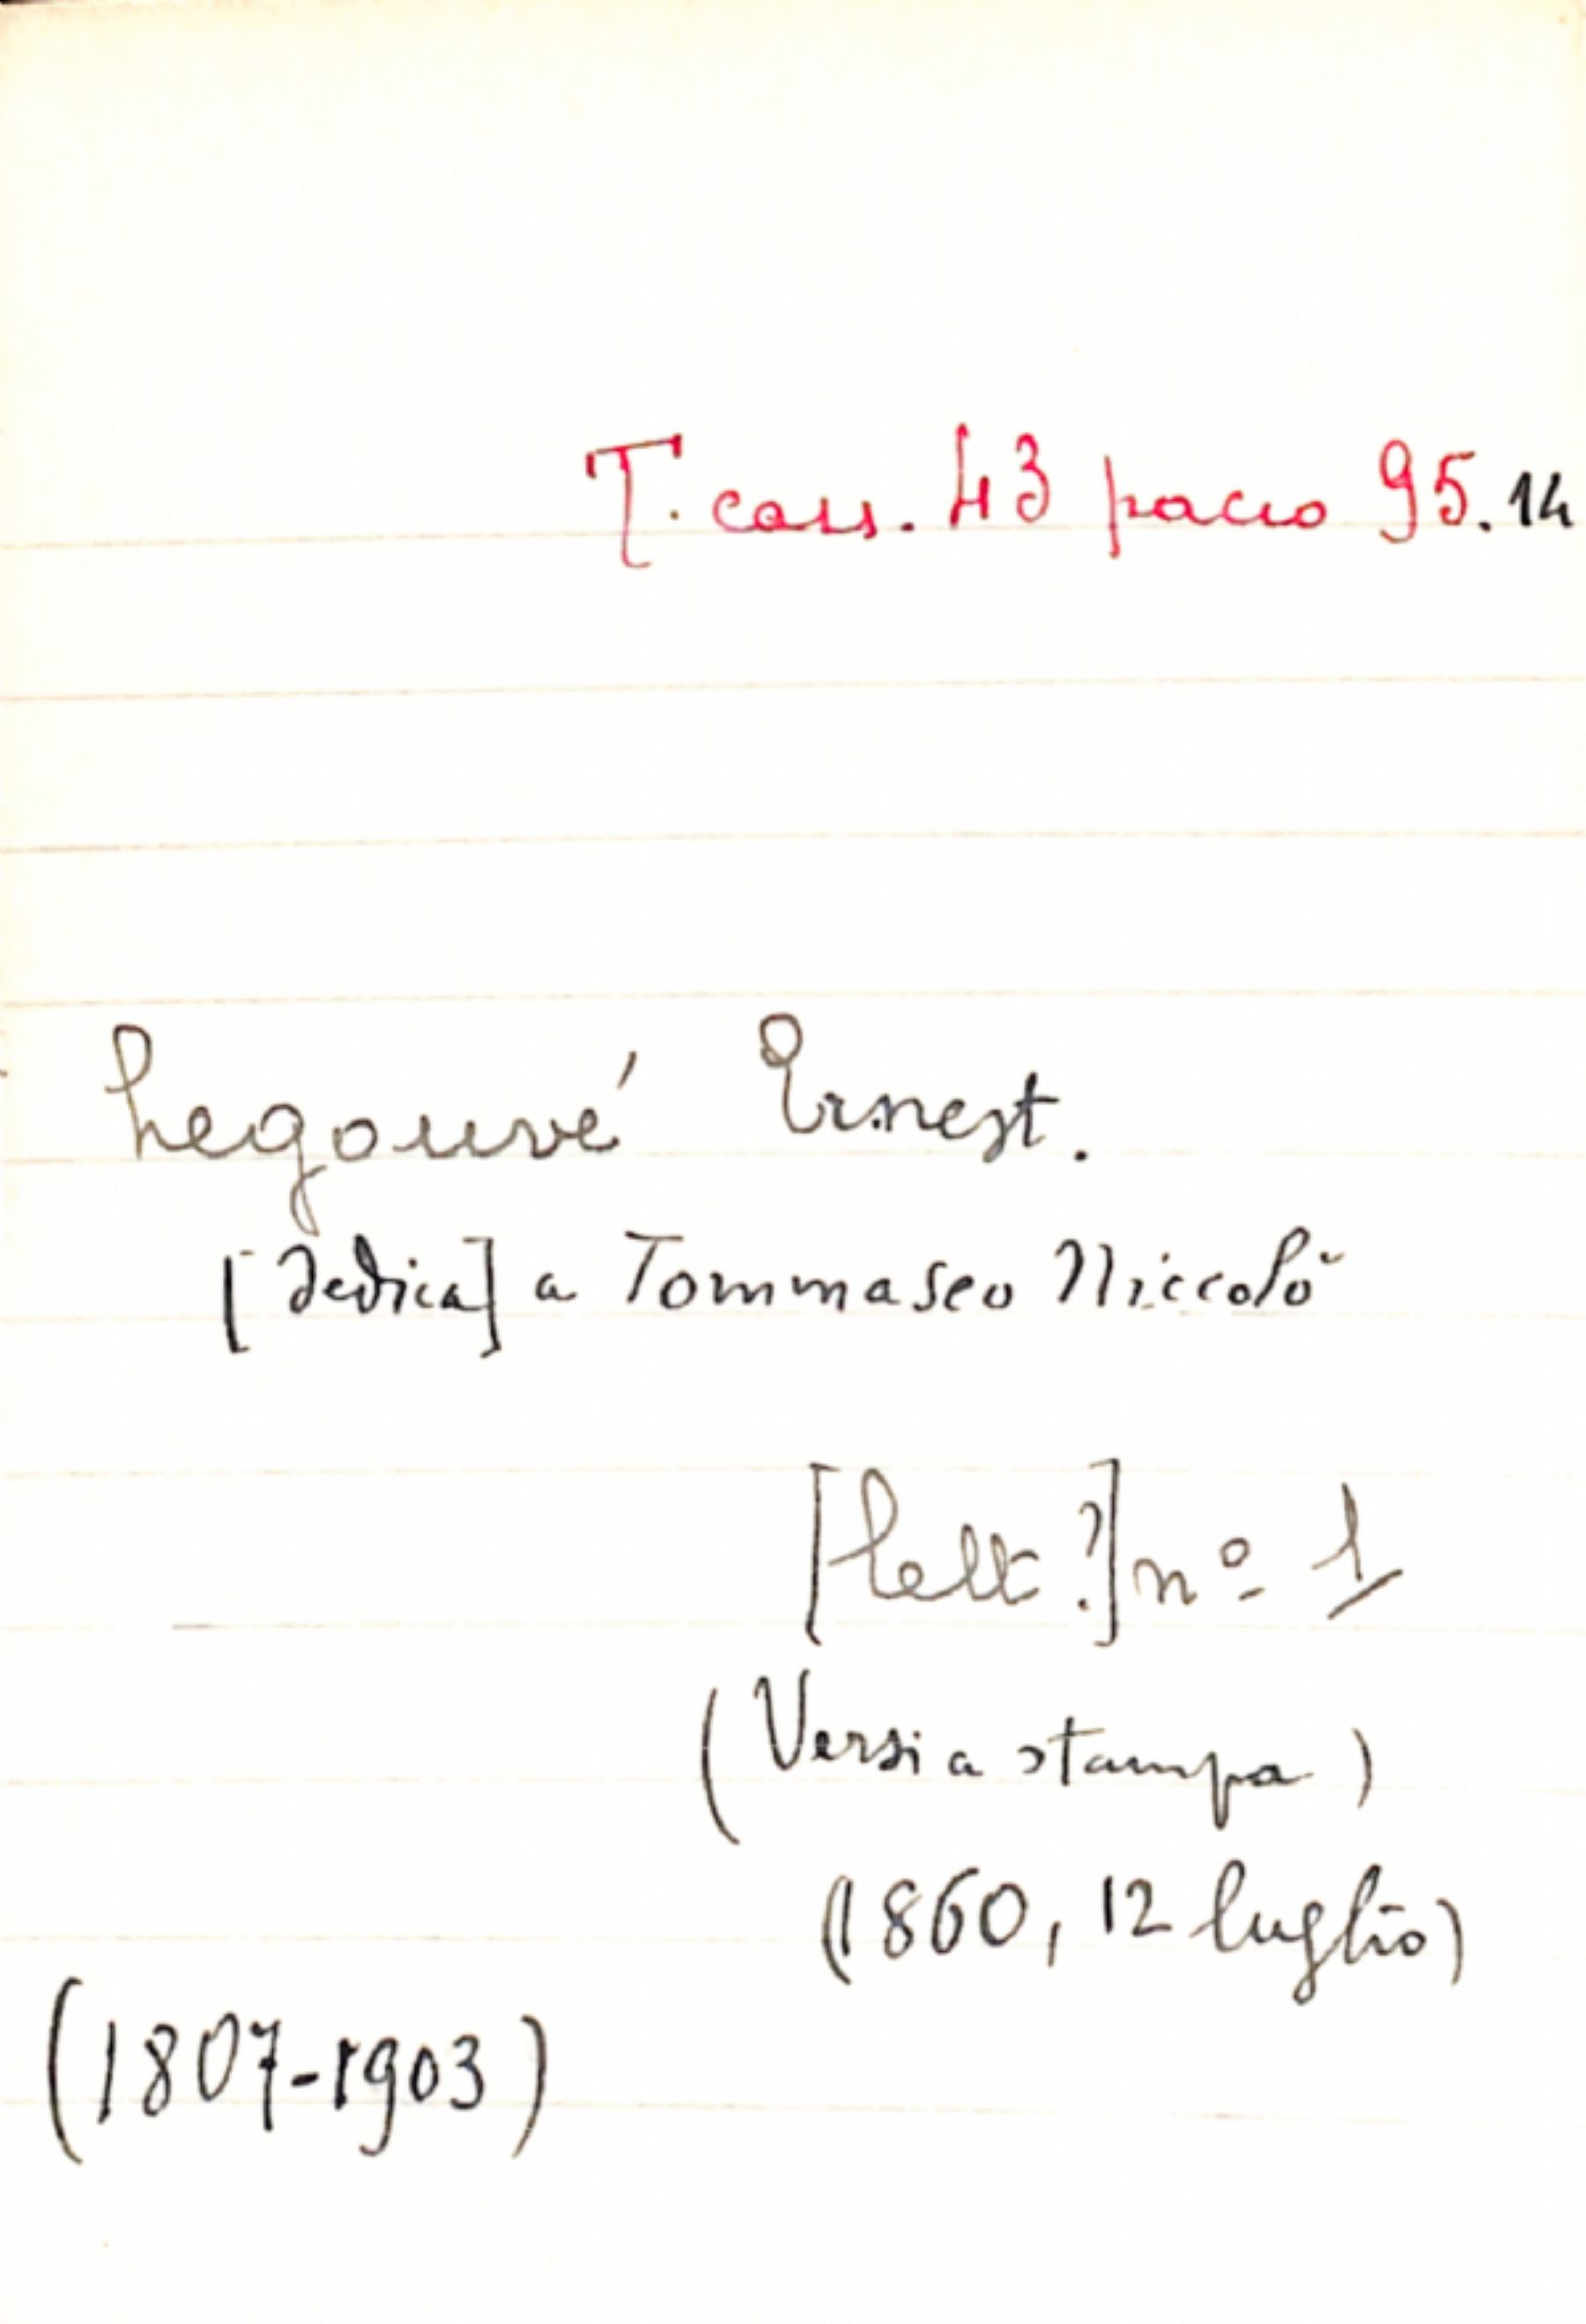 T. cass. 43 pacco 95.14
Legouvé Ernest.
[Dedica] a Tommaseo Niccolò
[lett?] nº 1
(Versi a stampa)
(1860, 12 luglio)
(1807-1903)